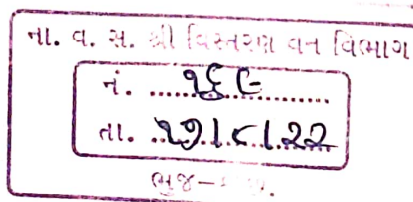 ના. વ. સ. શ્રી વિસ્તરણ વન વિભાગ
નં. ૧૬૯
તા. ૨૭/૮/૨૨
ભુજ-